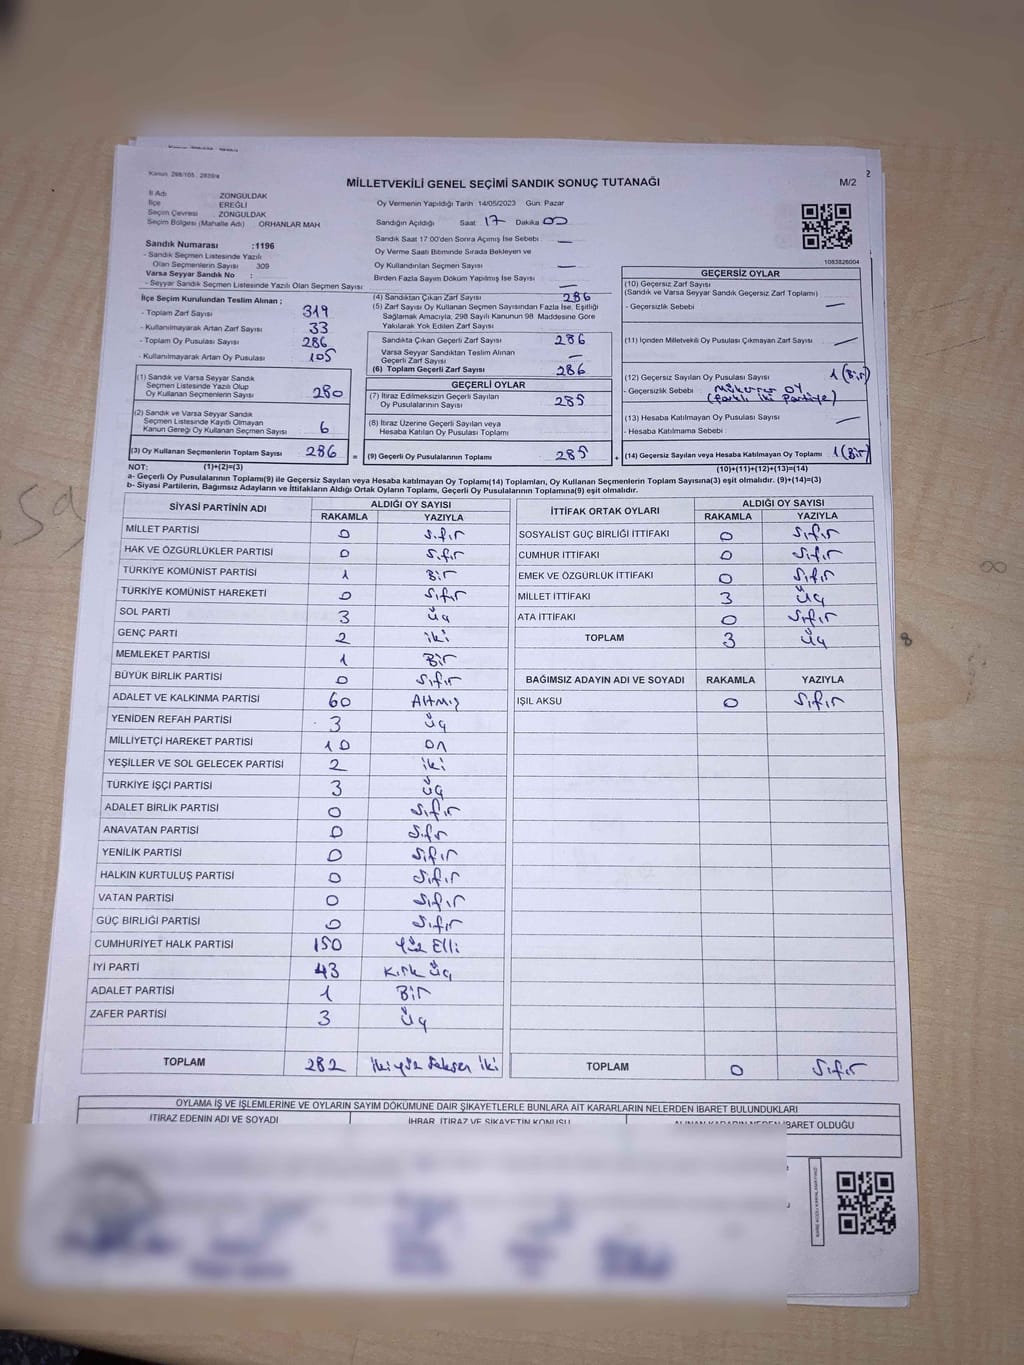 Kanun: 298/105 ; 2839/a
MİLLETVEKİLİ GENEL SEÇİMİ SANDIK SONUÇ TUTANAĞI
M/2
İl Adı : ZONGULDAK
İlçe : EREĞLİ
Seçim Çevresi : ZONGULDAK
Seçim Bölgesi (Mahalle Adı) : ORHANLAR MAH
Oy Vermenin Yapıldığı Tarih : 14/05/2023 Gün: Pazar
Sandığın Açıldığı Saat 17 Dakika 00
Sandık Numarası :1196
- Sandık Seçmen Listesinde Yazılı
Olan Seçmenlerin Sayısı 309
Varsa Seyyar Sandık No :
- Seyyar Sandık Seçmen Listesinde Yazılı Olan Seçmen Sayısı :
Sandık Saat 17:00'den Sonra Açılmış İse Sebebi : —
Oy Verme Saati Bitiminde Sırada Bekleyen ve
Oy Kullandırılan Seçmen Sayısı —
Birden Fazla Sayım Döküm Yapılmış İse Sayısı —
1083826004
İlçe Seçim Kurulundan Teslim Alınan ;
- Toplam Zarf Sayısı 319
- Kullanılmayarak Artan Zarf Sayısı 33
- Toplam Oy Pusulası Sayısı 286
- Kullanılmayarak Artan Oy Pusulası 105
(1) Sandık ve Varsa Seyyar Sandık
Seçmen Listesinde Yazılı Olup
Oy Kullanan Seçmenlerin Sayısı 280
(2) Sandık ve Varsa Seyyar Sandık
Seçmen Listesinde Kayıtlı Olmayan
Kanun Gereği Oy Kullanan Seçmen Sayısı 6
(3) Oy Kullanan Seçmenlerin Toplam Sayısı 286
(4) Sandıktan Çıkan Zarf Sayısı 286
(5) Zarf Sayısı Oy Kullanan Seçmen Sayısından Fazla İse, Eşitliği
Sağlamak Amacıyla, 298 Sayılı Kanunun 98. Maddesine Göre
Yakılarak Yok Edilen Zarf Sayısı
Sandıkta Çıkan Geçerli Zarf Sayısı 286
Varsa Seyyar Sandıktan Teslim Alınan
Geçerli Zarf Sayısı —
(6) Toplam Geçerli Zarf Sayısı 286
GEÇERLİ OYLAR
(7) İtiraz Edilmeksizin Geçerli Sayılan
Oy Pusulalarının Sayısı 285
(8) İtiraz Üzerine Geçerli Sayılan veya
Hesaba Katılan Oy Pusulası Toplamı
= (9) Geçerli Oy Pusulalarının Toplamı 285
GEÇERSİZ OYLAR
(10) Geçersiz Zarf Sayısı
(Sandık ve Varsa Seyyar Sandık Geçersiz Zarf Toplamı)
- Geçersizlik Sebebi —
(11) İçinden Milletvekili Oy Pusulası Çıkmayan Zarf Sayısı —
(12) Geçersiz Sayılan Oy Pusulası Sayısı 1 (Bir)
- Geçersizlik Sebebi : Mükerrer oy
(farklı iki partiye)
(13) Hesaba Katılmayan Oy Pusulası Sayısı —
- Hesaba Katılmama Sebebi :
+ (14) Geçersiz Sayılan veya Hesaba Katılmayan Oy Toplamı 1 (Bir)
NOT: (1)+(2)=(3) (10)+(11)+(12)+(13)=(14)
a- Geçerli Oy Pusulalarının Toplamı(9) ile Geçersiz Sayılan veya Hesaba katılmayan Oy Toplamı(14) Toplamları, Oy Kullanan Seçmenlerin Toplam Sayısına(3) eşit olmalıdır. (9)+(14)=(3)
b- Siyasi Partilerin, Bağımsız Adayların ve İttifakların Aldığı Ortak Oyların Toplamı, Geçerli Oy Pusulalarının Toplamına(9) eşit olmalıdır.
SİYASİ PARTİNİN ADI ALDIĞI OY SAYISI
RAKAMLA YAZIYLA
MİLLET PARTİSİ 0 Sıfır
HAK VE ÖZGÜRLÜKLER PARTİSİ 0 Sıfır
TÜRKİYE KOMÜNİST PARTİSİ 1 Bir
TÜRKİYE KOMÜNİST HAREKETİ 0 Sıfır
SOL PARTİ 3 Üç
GENÇ PARTİ 2 iki
MEMLEKET PARTİSİ 1 Bir
BÜYÜK BİRLİK PARTİSİ 0 Sıfır
ADALET VE KALKINMA PARTİSİ 60 Altmış
YENİDEN REFAH PARTİSİ 3 Üç
MİLLİYETÇİ HAREKET PARTİSİ 10 On
YEŞİLLER VE SOL GELECEK PARTİSİ 2 iki
TÜRKİYE İŞÇİ PARTİSİ 3 Üç
ADALET BİRLİK PARTİSİ 0 Sıfır
ANAVATAN PARTİSİ 0 Sıfır
YENİLİK PARTİSİ 0 Sıfır
HALKIN KURTULUŞ PARTİSİ 0 Sıfır
VATAN PARTİSİ 0 Sıfır
GÜÇ BİRLİĞİ PARTİSİ 0 Sıfır
CUMHURİYET HALK PARTİSİ 150 Yüz Elli
İYİ PARTİ 43 Kırk Üç
ADALET PARTİSİ 1 Bir
ZAFER PARTİSİ 3 Üç
TOPLAM 282 İkiyüz Seksen İki
İTTİFAK ORTAK OYLARI ALDIĞI OY SAYISI
RAKAMLA YAZIYLA
SOSYALİST GÜÇ BİRLİĞİ İTTİFAKI 0 Sıfır
CUMHUR İTTİFAKI 0 Sıfır
EMEK VE ÖZGÜRLÜK İTTİFAKI 0 Sıfır
MİLLET İTTİFAKI 3 Üç
ATA İTTİFAKI 0 Sıfır
TOPLAM 3 Üç
BAĞIMSIZ ADAYIN ADI VE SOYADI RAKAMLA YAZIYLA
IŞIL AKSU 0 Sıfır
TOPLAM 0 Sıfır
OYLAMA İŞ VE İŞLEMLERİNE VE OYLARIN SAYIM DÖKÜMÜNE DAİR ŞİKAYETLERLE BUNLARA AİT KARARLARIN NELERDEN İBARET BULUNDUKLARI
İTİRAZ EDENİN ADI VE SOYADI İHBAR, İTİRAZ VE ŞİKAYETİN KONUSU ALINAN KARARIN NEDEN İBARET OLDUĞU